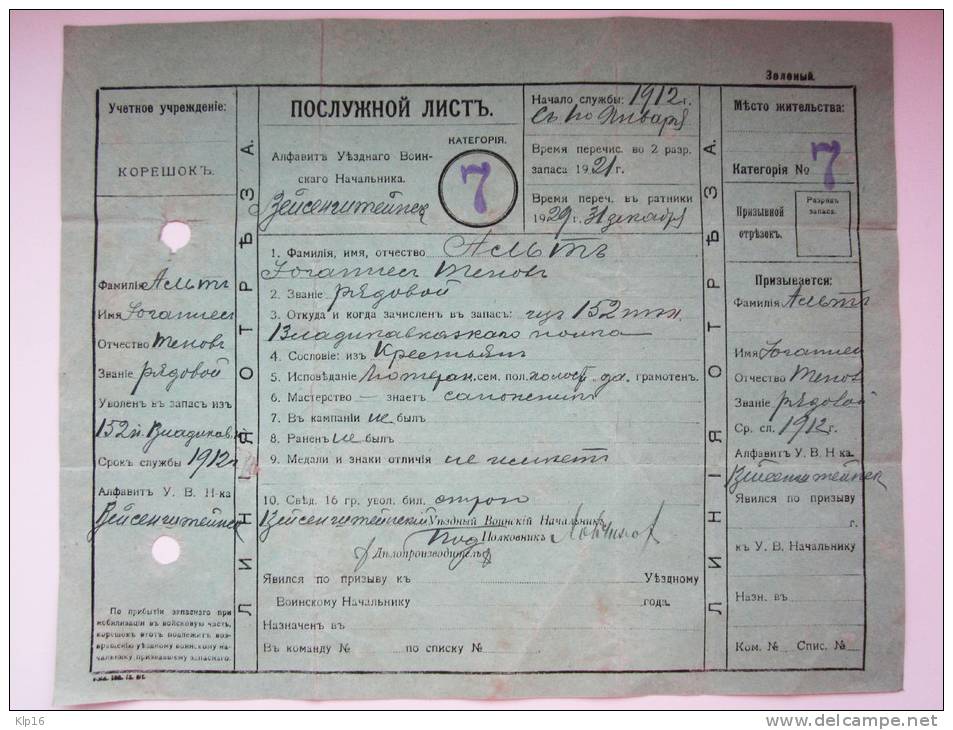 Зеленый.
Учетное учрежденіе:
КОРЕШОКЪ.
Фамилія Асмтъ
Имя Іоганнес
Отчество Теновъ
Званіе рядовой
Уволен въ запасъ изъ
152 п. Владикав.
Срокъ службы 1912 г.
Алфавитъ У. В. Н-ка
Вейсенштейнск
По прибытіи запаснаго при
мобилизаціи въ войсковую часть,
корешокъ этотъ подлежитъ воз-
вращенію уѣздному воинскому на-
чальнику призвавшему запаснаго.
ЛИНІЯ ОТРѢЗА.
ПОСЛУЖНОЙ ЛИСТЪ.
КАТЕГОРІЯ.
7
Алфавитъ Уѣзднаго Воин-
скаго Начальника.
Вейсенштейнск
Начало службы: 1912 г.
съ 1го Января
Время перечис. во 2 разр.
запаса 1921 г.
Время переч. въ ратники
1929 г. 31 декабря
1. Фамилія, имя, отчество Асмтъ
Іоганнес Теновъ
2. Званіе рядовой
3. Откуда и когда зачислен въ запасъ: из 152 пѣх.
Владикавказкаго полка
4. Сословіе: изъ Крестьян
5. Исповѣданіе Лютеран. сем. пол. холост. да грамотен.
6. Мастерство — знаетъ сапожникъ
7. Въ кампаніи не былъ
8. Раненъ не былъ
9. Медали и знаки отличія не имѣетъ
10. Свѣд. 16 гр. увол. бил.
Вейсенштейнскій Уѣздный Воинскій Начальникъ
Под Полковникъ
Дѣлопроизводитель
Явился по призыву къ Уѣздному
Воинскому Начальнику года.
Назначен въ
Въ команду № по списку №
ЛИНІЯ ОТРѢЗА.
Мѣсто жительства:
Категорія № 7
Призывной
отрѣзок.
Разрядъ
запаса.
Призывается:
Фамилія Асмтъ
Имя Іоганнес
Отчество Теновъ
Званіе рядовой
Ср. сл. 1912 г.
Алфавитъ У. В. Н-ка.
Вейсенштейнск
Явился по призыву
г.
къ У. В. Начальнику
Назн. въ
Ком. № Спис. №
Klp16
www.delcampe.net